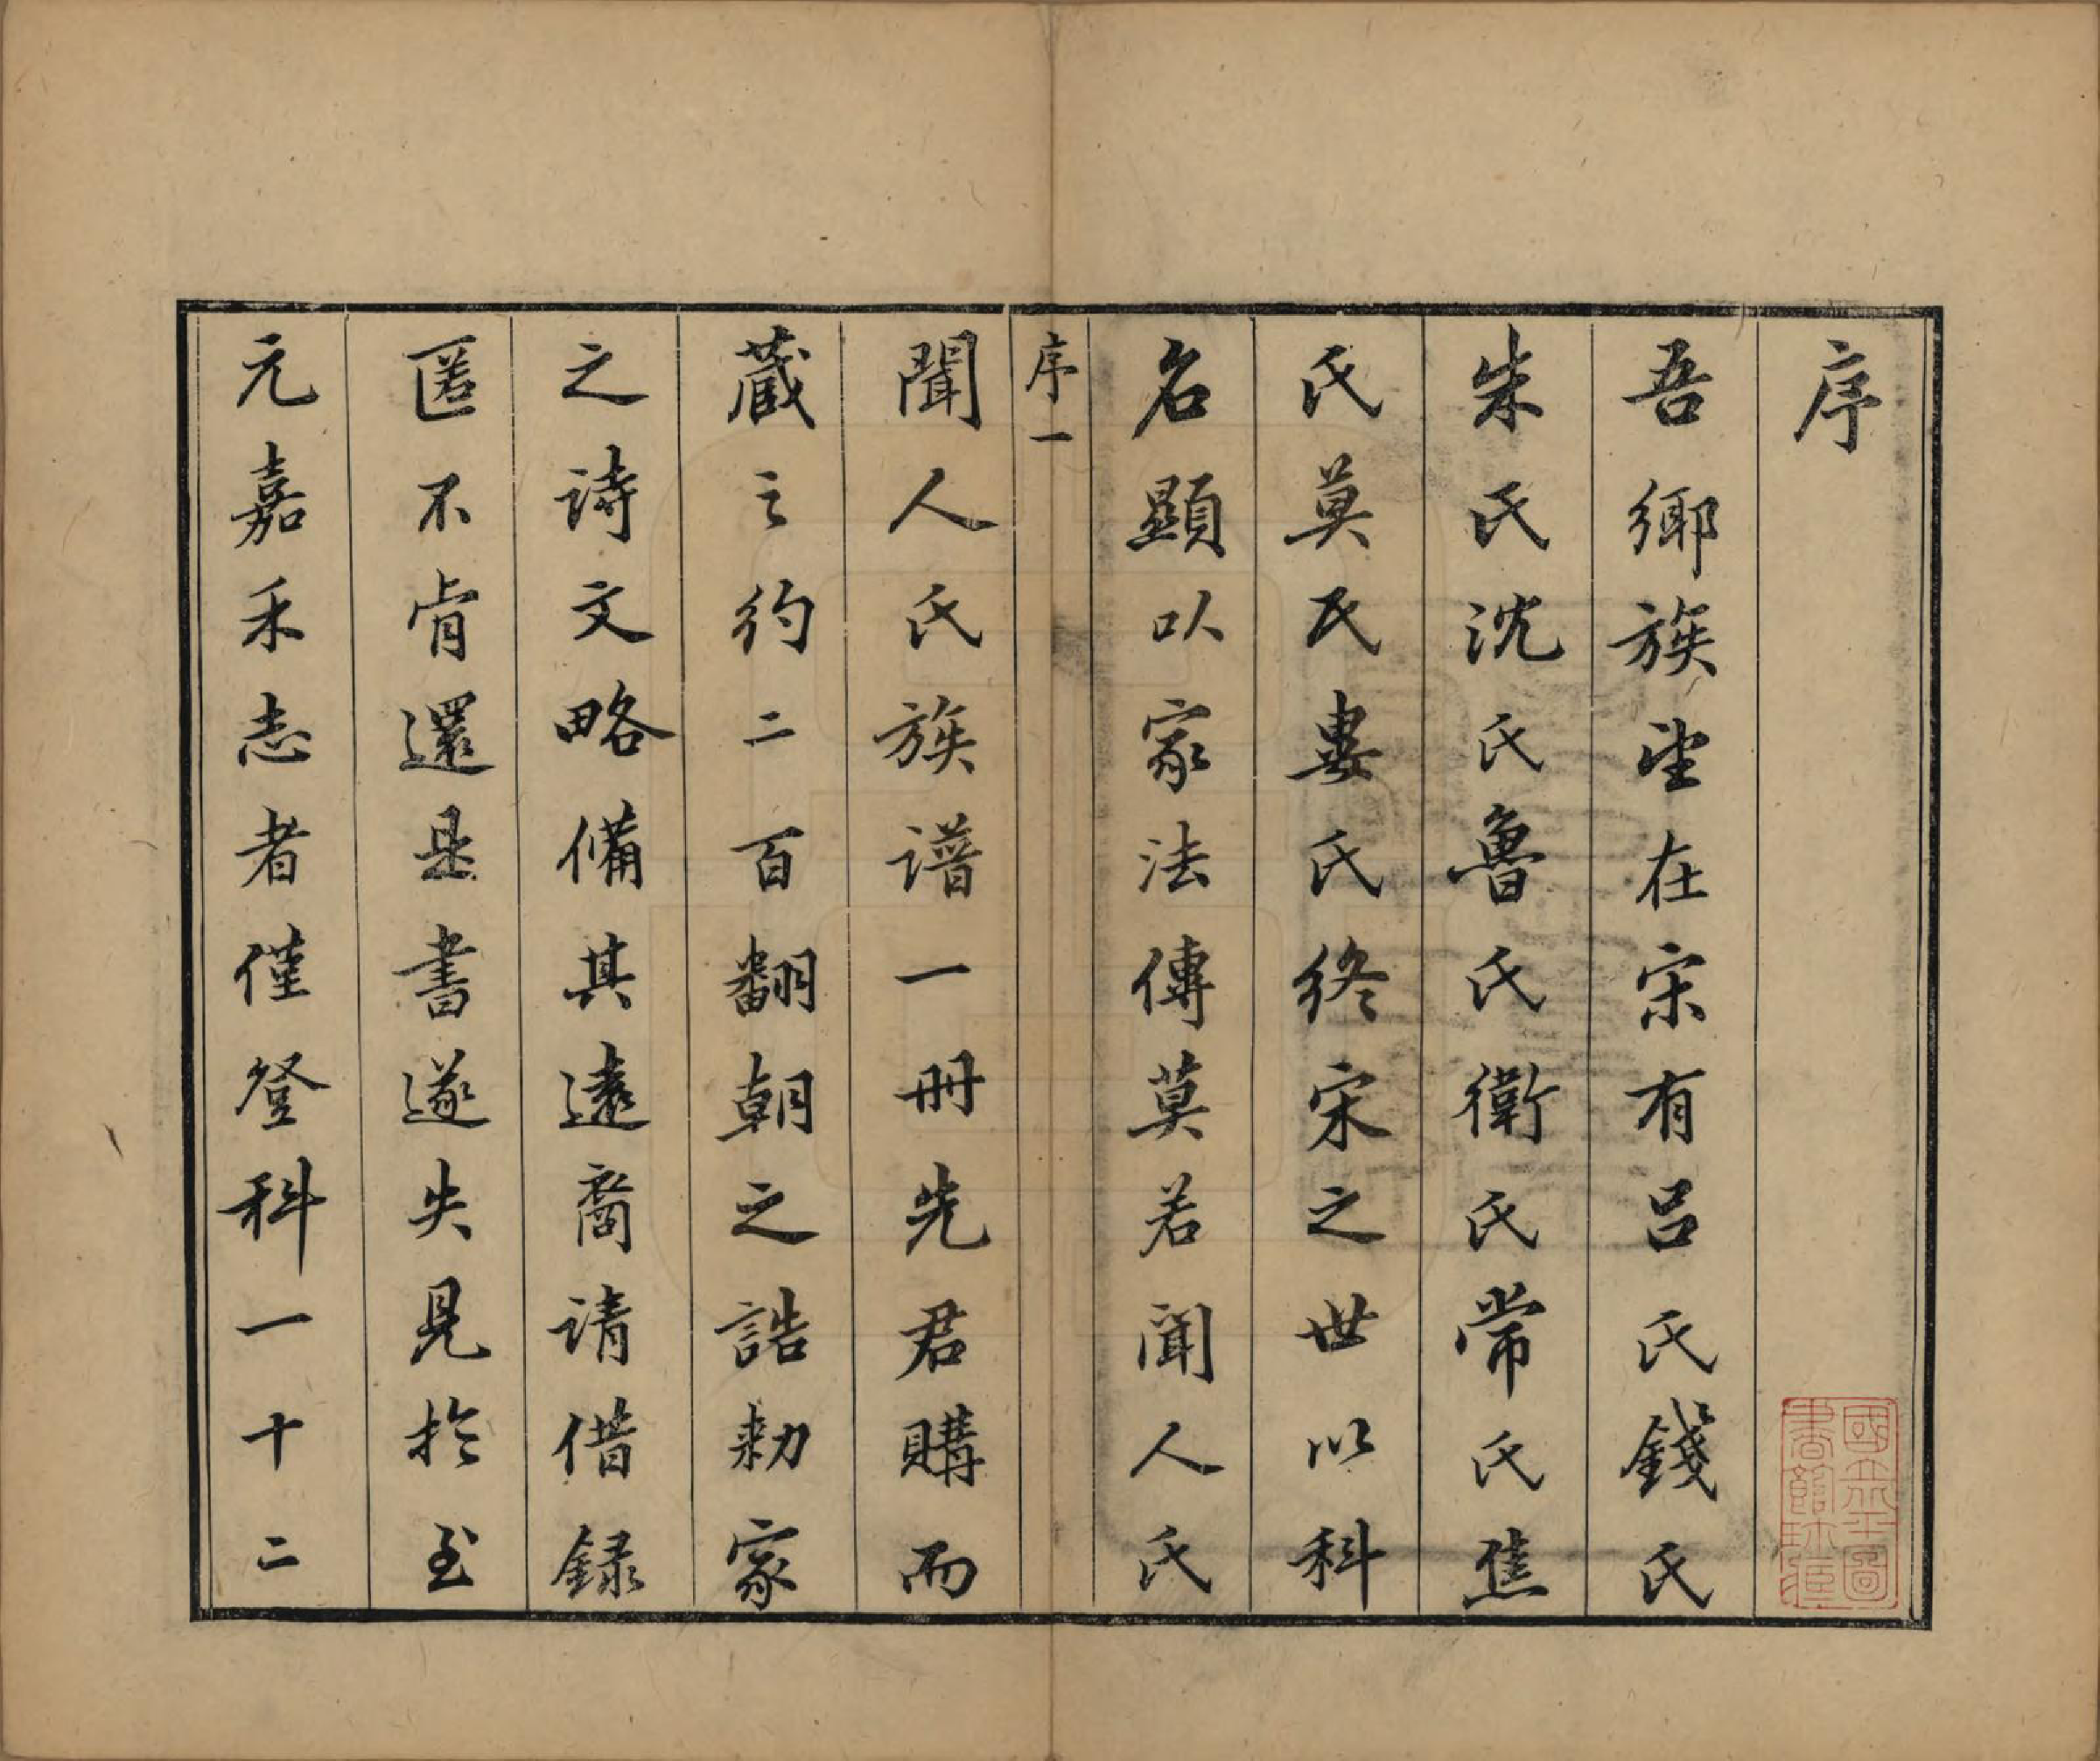 序
吾鄉族望在宋有呂氏錢氏
朱氏沈氏魯氏衛氏常氏焦
氏莫氏婁氏終宋之世以科
名顯以家法傳莫若聞人氏
序一
聞人氏族譜一冊先君購而
藏之約二百翻朝之誥勅家
之詩文略備其遠裔請借錄
匿不肯還是書遂失見於至
元嘉禾志者僅登科一十二
國立北平圖
書館珍藏